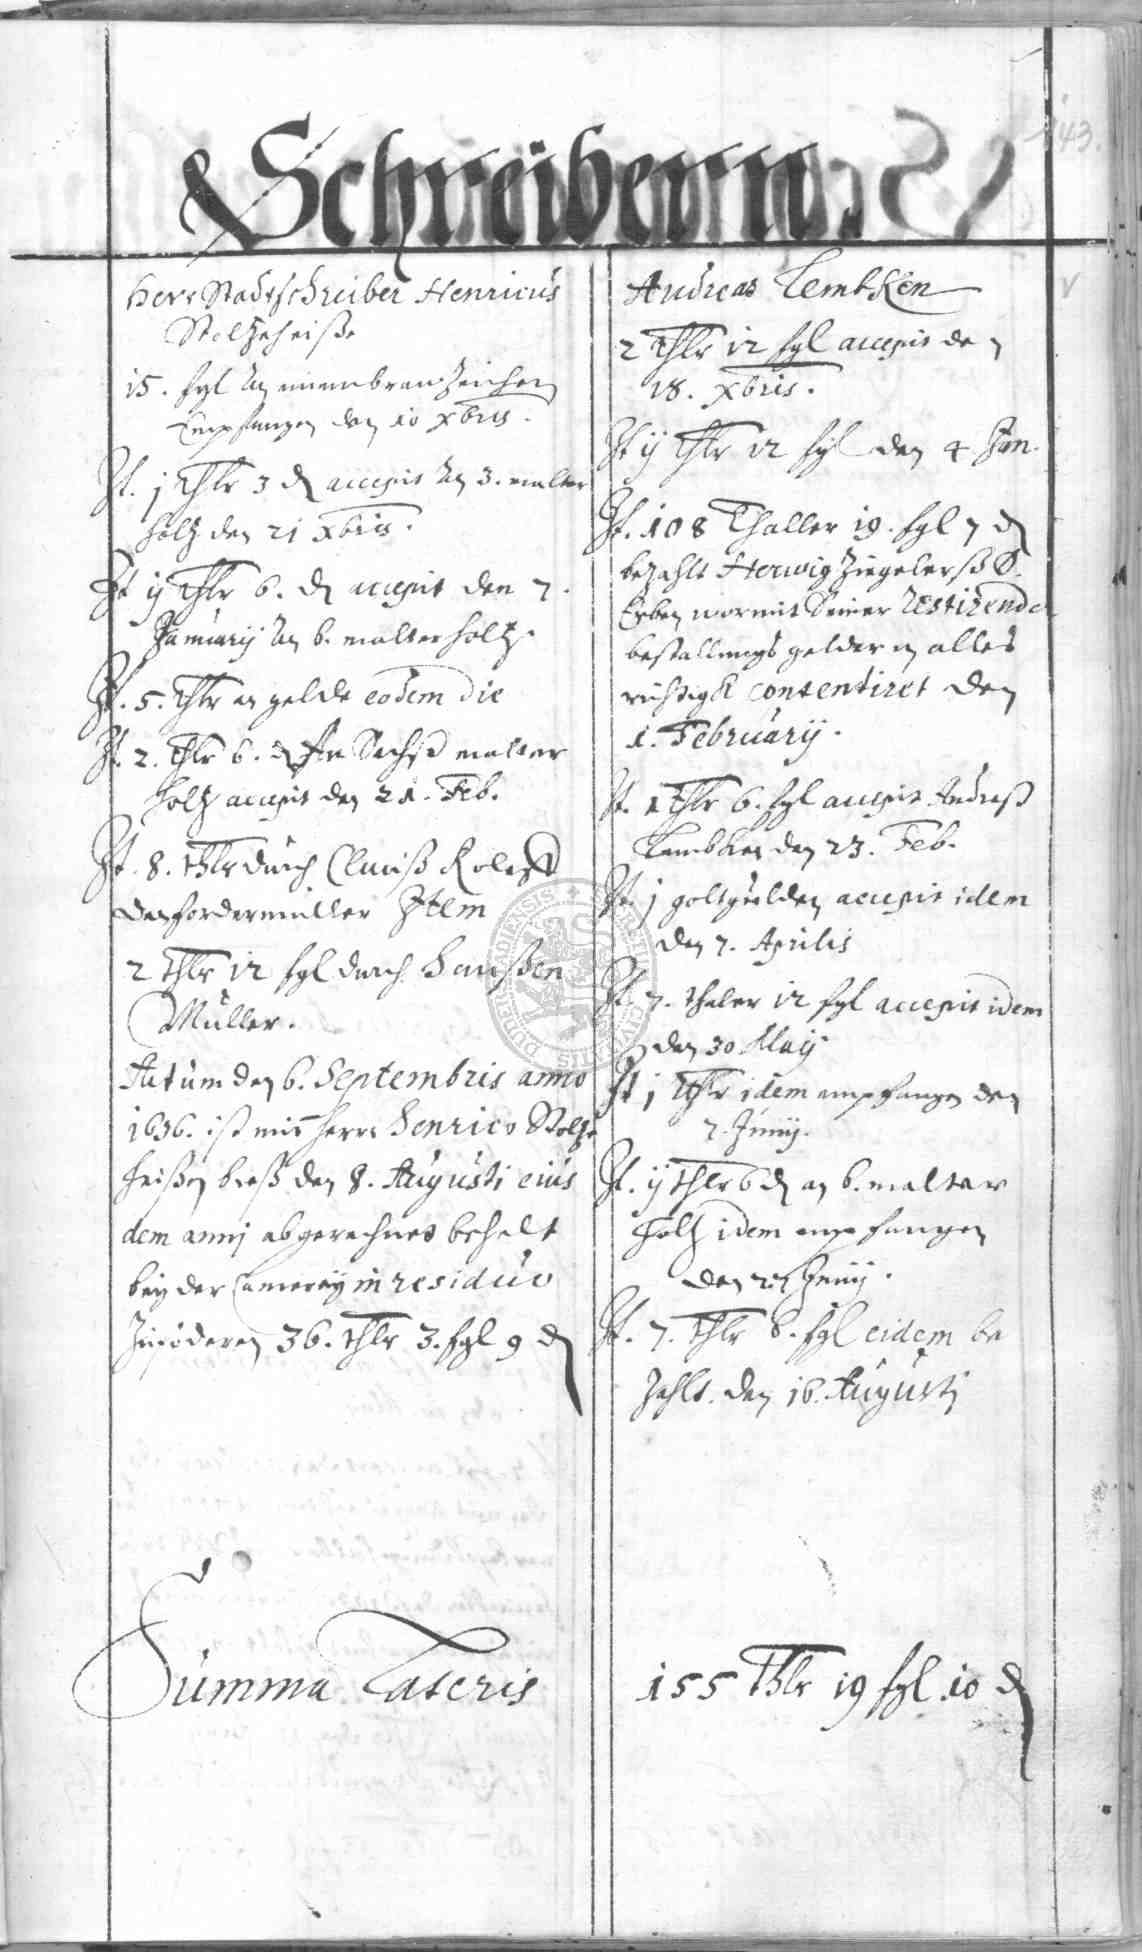 143.
& Schreibern.
Herr Stadtschreiber Henricus
Stoltzeheiße
15. sgl an membran Zeichen
Empfangen den 10 Xbris.
It. j Thlr 3 ₰ accepit an 3. malter
holtz den 21 Xbris.
It ij Thlr 6. ₰ accepit den 7.
Januarij an 6. malter holtz.
It. 5. Thlr an gelde eodem die
It. 2. Thlr 6. ₰ An Sechs malter
holtz accepit den 21. Feb.
It. 8. thlr durch Clauß
den fordermüller Item
2 thlr 12 sgl durch Hanßen
Müller.
Actum den 6. Septembris anno
1636. ist mit herrn Henrico Stoltze
heißen bieß den 8. Augusti eius
dem annj abgerechnet behelt
beij der Camereij in residuo
Zufoderen 36. thlr 3. sgl 9 ₰
Andreas Lembken
2 Thlr 12 sgl accepit den
18. Xbris.
It ij Thlr 12 sgl den 4 Jan.
It. 108 Thaller 19. sgl 7 ₰
bezahlt Herwig Ziegelerß S.
Erben wormit Seiner restirende
bestallungs geldern alles
richtigk contentiret den
1. Februarij.
It. 1 Thlr 6. sgl accepit Andreß
Lembken den 23. Feb.
It. j goltgulden accepit idem
den 7. Aprilis
It. 7. thaler 12 sgl accepit idem
den 30 Maij
It j Thlr idem empfangen den
7. Junij.
It. ij thlr 6 ₰ an 6. malter
holtz idem empfangen
den Junij.
It. 7. Thlr 8. sgl eidem be
zahlt. den 16. Augustj
Summa Lateris 155 Thlr 19 sgl 10 ₰